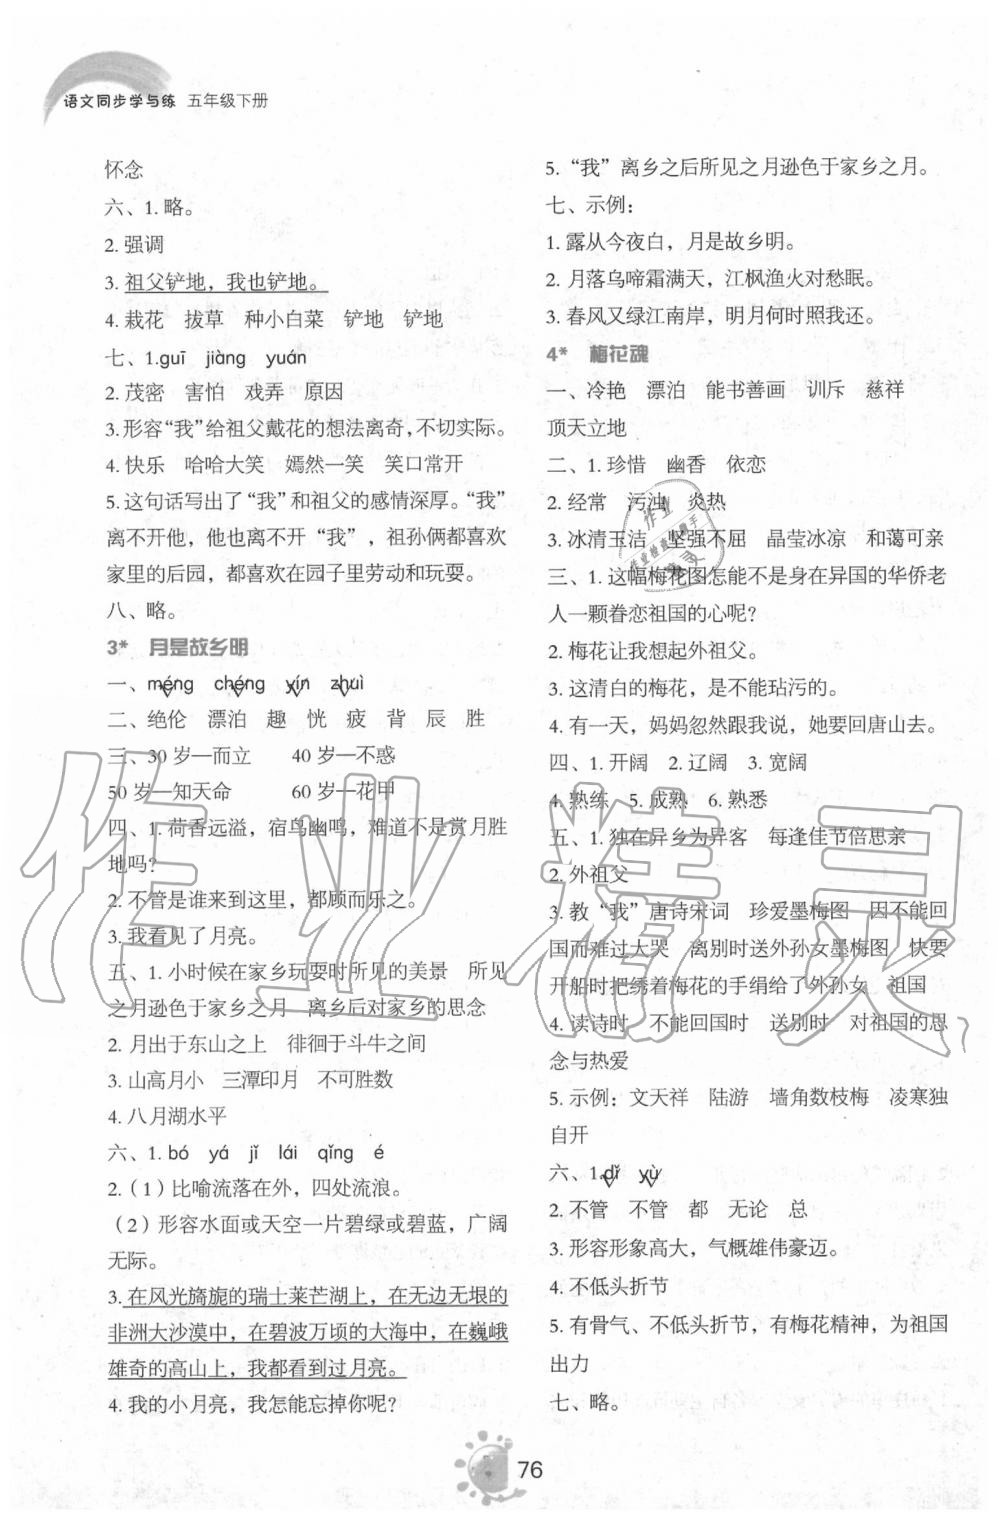 语文同步学与练 五年级下册
怀念
六、1. 略。
2. 强调
3. 祖父铲地，我也铲地。
4. 栽花 拔草 种小白菜 铲地 铲地
七、1.guī jiàng yuán
2. 茂密 害怕 戏弄 原因
3. 形容“我”给祖父戴花的想法离奇，不切实际。
4. 快乐 哈哈大笑 嫣然一笑 笑口常开
5. 这句话写出了“我”和祖父的感情深厚。“我”
离不开他，他也离不开“我”，祖孙俩都喜欢
家里的后园，都喜欢在园子里劳动和玩耍。
八、略。
3* 月是故乡明
一、méng chéng yín zhuì
二、绝伦 漂泊 趣 恍 疲 背 辰 胜
三、30 岁—而立 40 岁—不惑
50 岁—知天命 60 岁—花甲
四、1. 荷香远溢，宿鸟幽鸣，难道不是赏月胜
地吗？
2. 不管是谁来到这里，都顾而乐之。
3. 我看见了月亮。
五、1. 小时候在家乡玩耍时所见的美景 所见
之月逊色于家乡之月 离乡后对家乡的思念
2. 月出于东山之上 徘徊于斗牛之间
3. 山高月小 三潭印月 不可胜数
4. 八月湖水平
六、1. bó yá jǐ lái qǐng é
2.（1）比喻流落在外，四处流浪。
（2）形容水面或天空一片碧绿或碧蓝，广阔
无际。
3. 在风光旖旎的瑞士莱芒湖上，在无边无垠的
非洲大沙漠中，在碧波万顷的大海中，在巍峨
雄奇的高山上，我都看到过月亮。
4. 我的小月亮，我怎能忘掉你呢？
5. “我”离乡之后所见之月逊色于家乡之月。
七、示例：
1. 露从今夜白，月是故乡明。
2. 月落乌啼霜满天，江枫渔火对愁眠。
3. 春风又绿江南岸，明月何时照我还。
4* 梅花魂
一、冷艳 漂泊 能书善画 训斥 慈祥
顶天立地
二、1. 珍惜 幽香 依恋
2. 经常 污浊 炎热
3. 冰清玉洁 坚强不屈 晶莹冰凉 和蔼可亲
三、1. 这幅梅花图怎能不是身在异国的华侨老
人一颗眷恋祖国的心呢？
2. 梅花让我想起外祖父。
3. 这清白的梅花，是不能玷污的。
4. 有一天，妈妈忽然跟我说，她要回唐山去。
四、1. 开阔 2. 辽阔 3. 宽阔
4. 熟练 5. 成熟 6. 熟悉
五、1. 独在异乡为异客 每逢佳节倍思亲
2. 外祖父
3. 教“我”唐诗宋词 珍爱墨梅图 因不能回
国而难过大哭 离别时送外孙女墨梅图 快要
开船时把绣着梅花的手绢给了外孙女 祖国
4. 读诗时 不能回国时 送别时 对祖国的思
念与热爱
5. 示例：文天祥 陆游 墙角数枝梅 凌寒独
自开
六、1.dǐ xù
2. 不管 不管 都 无论 总
3. 形容形象高大，气概雄伟豪迈。
4. 不低头折节
5. 有骨气、不低头折节，有梅花精神，为祖国
出力
七、略。
76
作业精灵